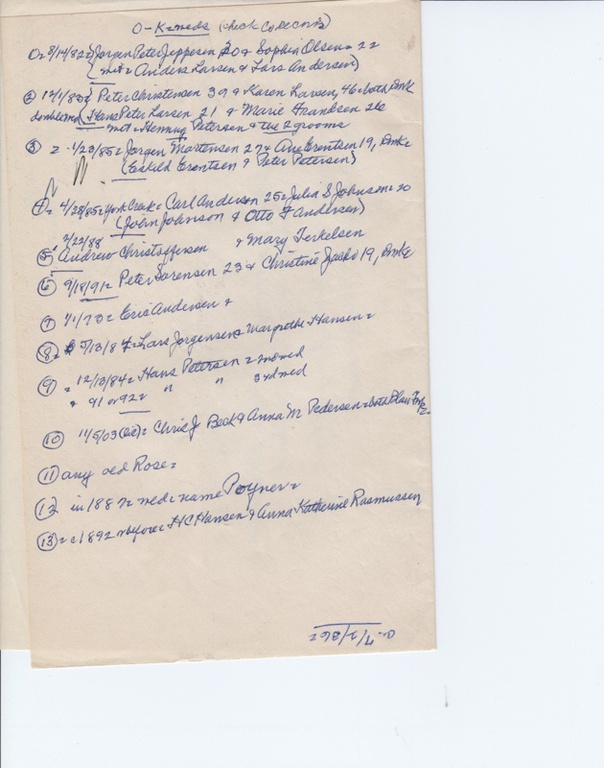 O-K=meds (check Co Records)
① = 8/14/82 = Jorgen Peter Jeppesen 30 & Sophia Olsen = 22
(wit = Anders Larsen & Lars Andersen)
② 12/1/83 { Peter Christensen 39 & Karen Larsen, 46 = both Dmk
double md { Hans Peter Larsen 21 & Marie Frandsen 26
wit = Henning Petersen & the 2 grooms
③ = 1/23/85 = Jorgen Mortensen 27 & Ane Erentsen 19, Dmk =
(Eskild Erentsen & Peter Petersen)
④ = 4/28/85 = York Creek = Carl Anderson 25 = Julia S Johnson = 20
(John Johnson & Otto F Andersen)
2/22/88
⑤ Andrew Christoffersen & Mary Terkelsen
⑥ 9/18/91 = Peter Sorensen 23 & Christine 19, Dmk
⑦ 1/1/73 = Eric Andersen &
⑧ = 5/13/84 = Lars Jorgensen & Margrethe Hansen =
⑨ = 12/13/84 = Hans Petersen = 2nd med
" 91 or 92 = " " 3rd med
⑩ 11/5/03 = Chris J Beck & Anna M Pedersen = both Blair
⑪ any old Rose =
⑫ in 1887 = med = name Poyner =
⑬ = c1892 or before = H C Hansen & Anna Katherine Rasmussen
7/2/86 =